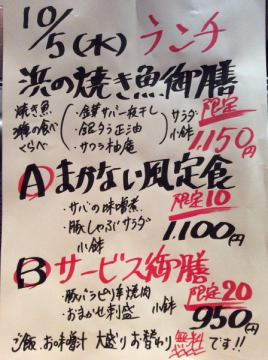 10/5(水) ランチ
浜の焼き魚御膳
焼き魚 3種の食べくらべ
・金華サバ一夜干し
・銀ダラ正油
・サワラ柚庵
サラダ
小鉢
限定
1.150円
A まかない風定食
・サバの味噌煮
・豚しゃぶサラダ
小鉢
限定10
1.100円
B サービス御膳
・豚バラピリ辛焼肉
・おまかせ刺盛
小鉢
限定20
950円
ご飯、お味噌汁 大盛りお替わり無料です!!